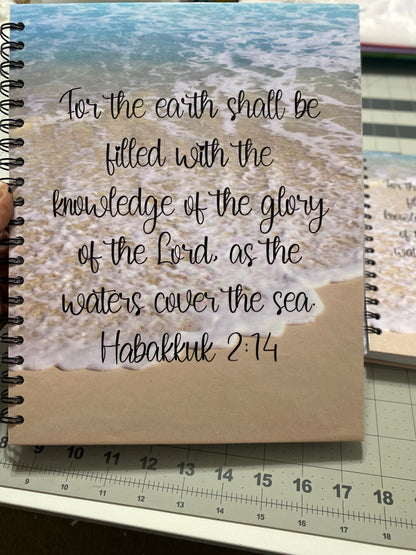 For the earth shall be
filled with the
knowledge of the glory
of the Lord, as the
waters cover the sea.
Habakkuk 2:14
8 9 10 11 12 13 14 15 16 17 18
9 10 11 12 13 14 15 16 17 18